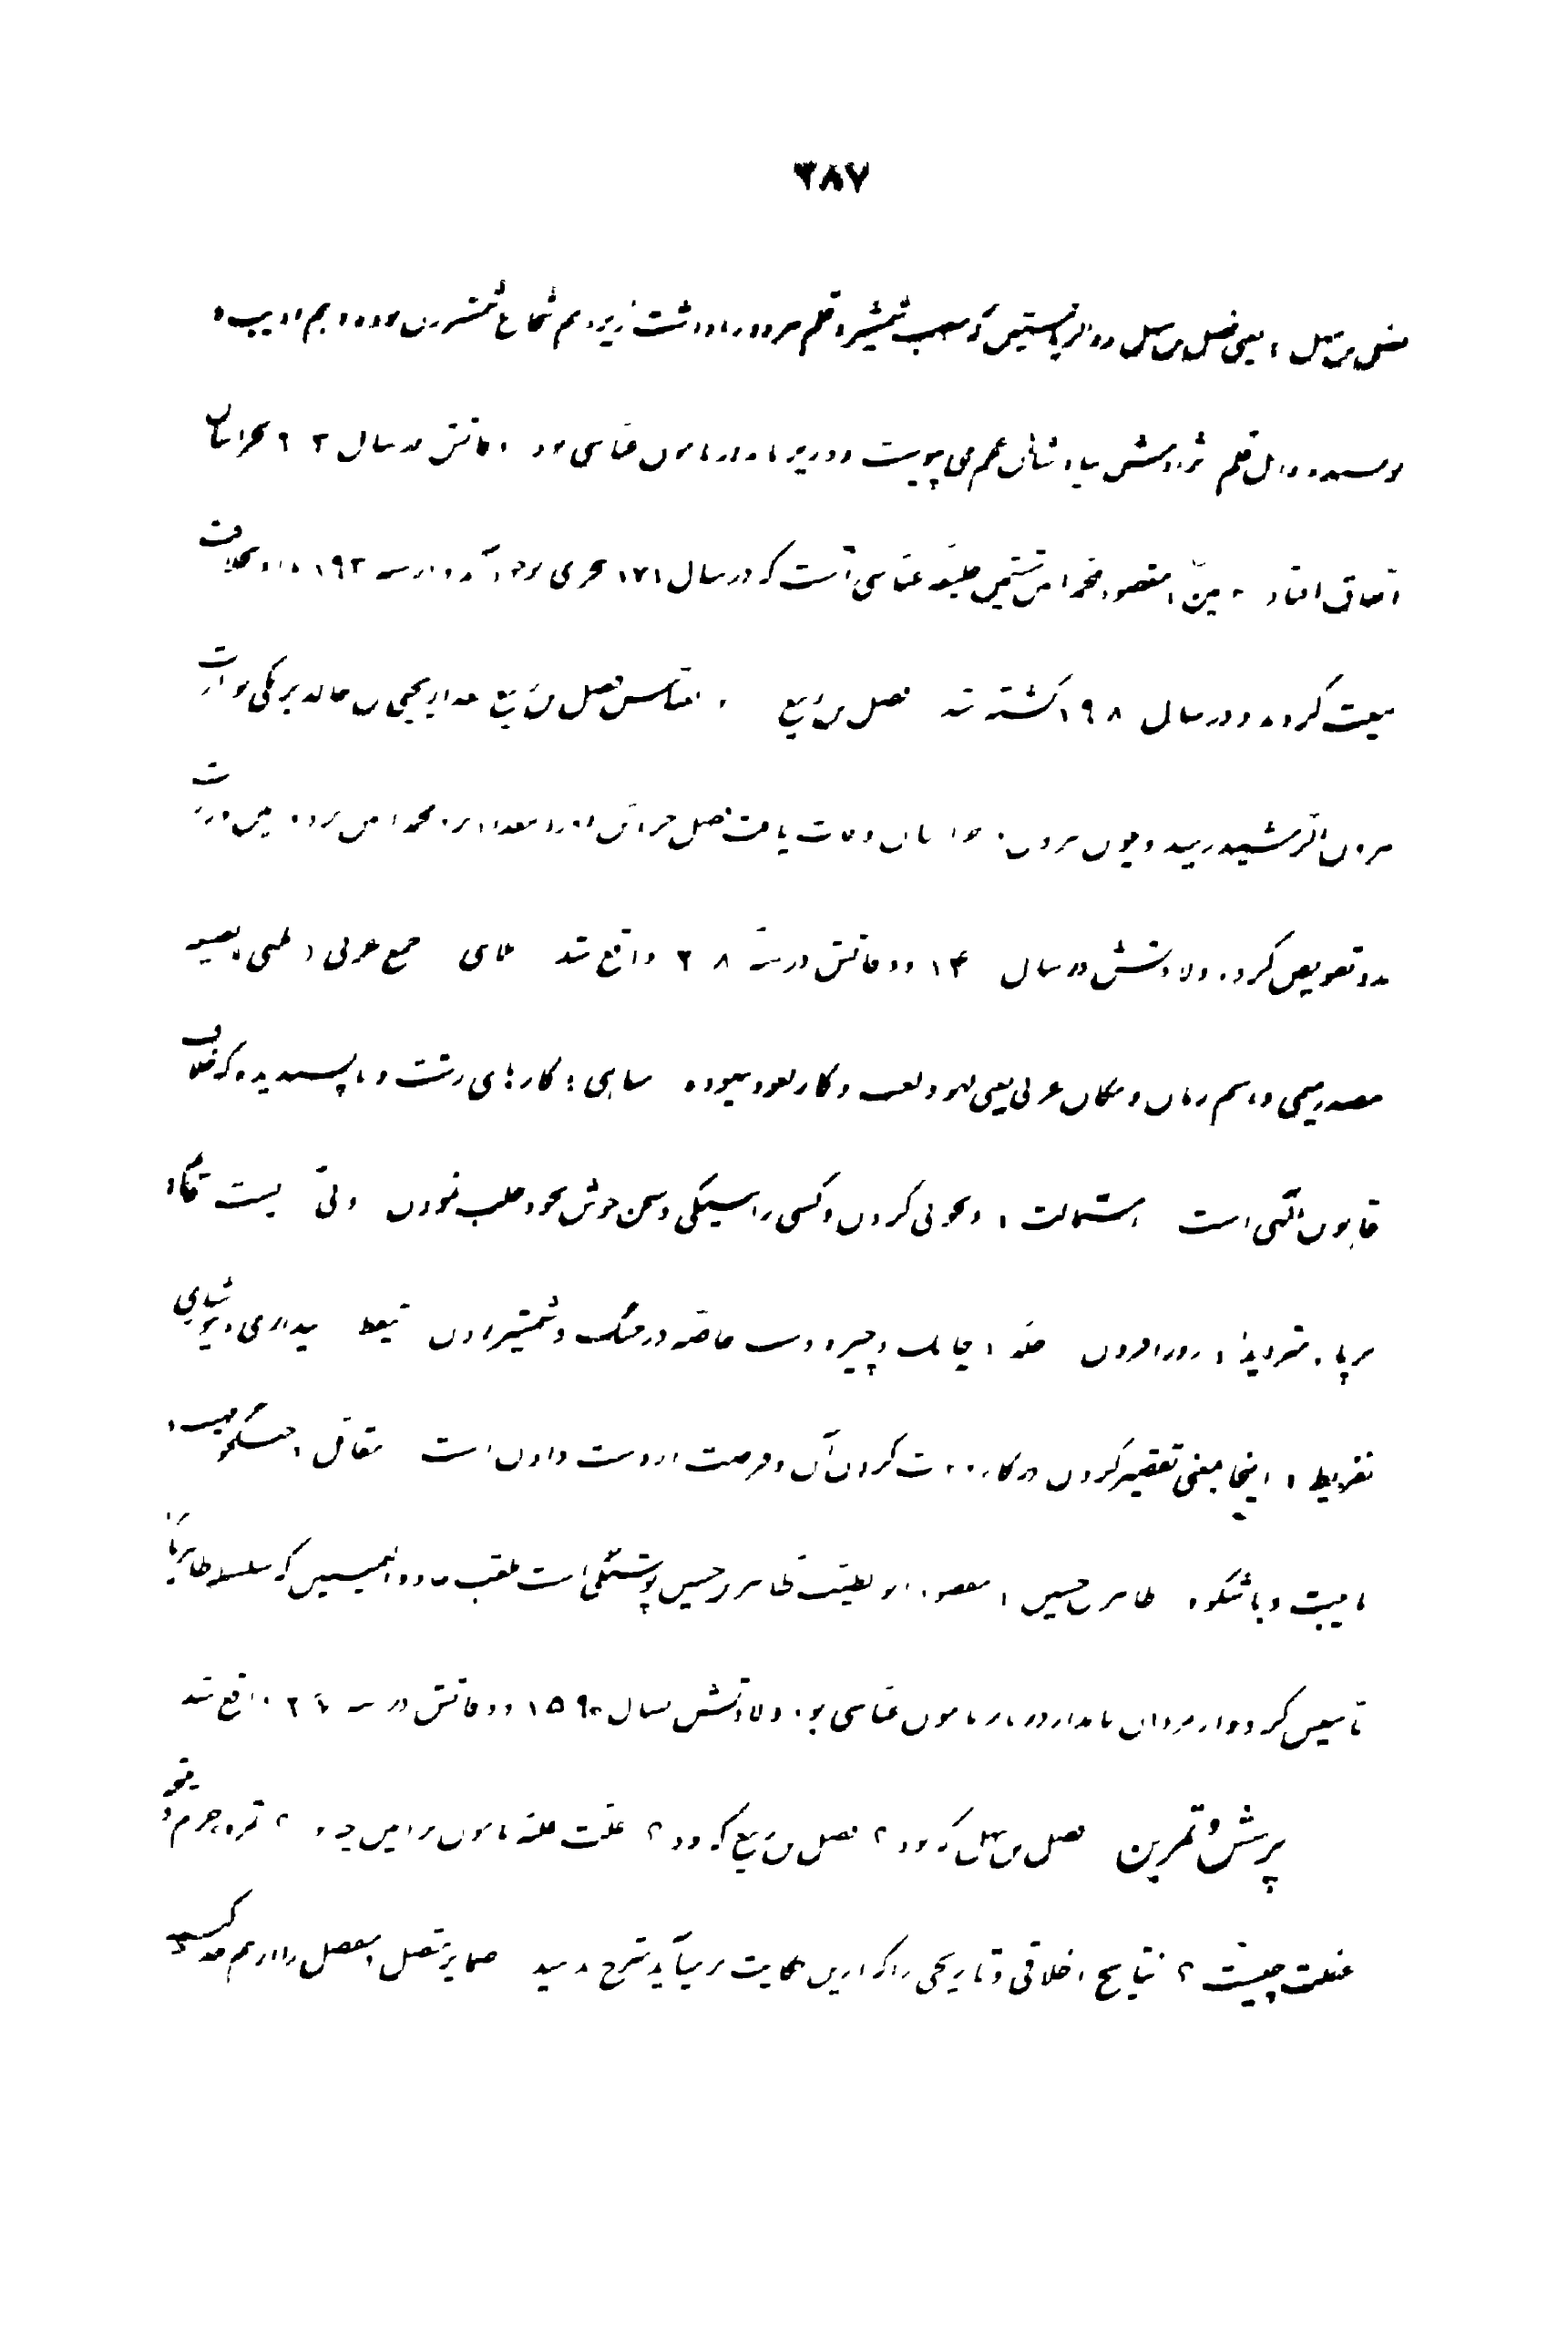 ۳۸۷
فضل بن سهل : یعنی فضل بن سهل ذوالریاستین که منصب شمشیر و قلم هر دو را داشت زیرا هم شجاع شمشیرزن بوده و هم ادیب و
نویسنده و اهل قلم نژادش بپادشاهان عجم می پیوست و وزیر نامدار مامون عباسی بود وفاتش در سال ۲۰۲ بخراسان
اتفاق افتاد امین : مقصود محمد امین ششمین خلیفه عباسی است که در سال ۱۷۱ هجری بوجود آمد و در سنه ۱۹۳ با او بخلافت
بیعت کردند و در سال ۱۹۸ کشته شد فضل بن ربیع : ابوالعباس فضل بن ربیع بعد از یحیی بن خالد برمکی بوزارت
هرون الرشید رسید و چون هرون در خراسان وفات یافت فضل خزائن او را ببغداد نزد محمد امین برد و امین وزارت
بدو تفویض کرد ولادتش در سال ۱۴۰ و وفاتش در سنه ۲۰۸ واقع شد ملاهی جمع عربی ملهی بصیغه
مصدر میمی و اسم زمان و مکان عربی یعنی لهو و لعب و کار لغو و بیهوده مناهی : کارهای زشت و ناپسندیده که خلاف
قانون الهی است استمالت : دلجوئی کردن و کسی را به نیکی و سخن خوش بخود جلب نمودن
برپا متزاید : روزافزون جلد : چابک و چیره دست خاصه در جنگ و شمشیر زدن تیقظ بیداری و هوشیاری
تفریط : اینجا بمعنی تقصیر کردن در کار و فوت کردن آن و فرصت از دست دادن است مقاتل : جنگجو مهیب :
با هیبت و باشکوه طاهر بن حسین : مقصود ابوطیب طاهر بن حسین پوشنگی است ملقب به ذوالیمینین که سلسله طاهریان را
تأسیس کرد و از سرداران نامدار دربار مامون عباسی بود ولادتش بسال ۱۵۹ و وفاتش در سنه ۲۰۷ واقع شد
پرسش و تمرین فضل بن سهل که بود ؟ فضل بن ربیع که بود ؟ علت غلبه مامون بر امین چه بود ؟ ثمره حزم و تیقظ و
غفلت چیست ؟ نتایج اخلاقی و تاریخی را که از این حکایت برمیآید شرح دهید ضمایر متصل و منفصل را از هم جدا کنید